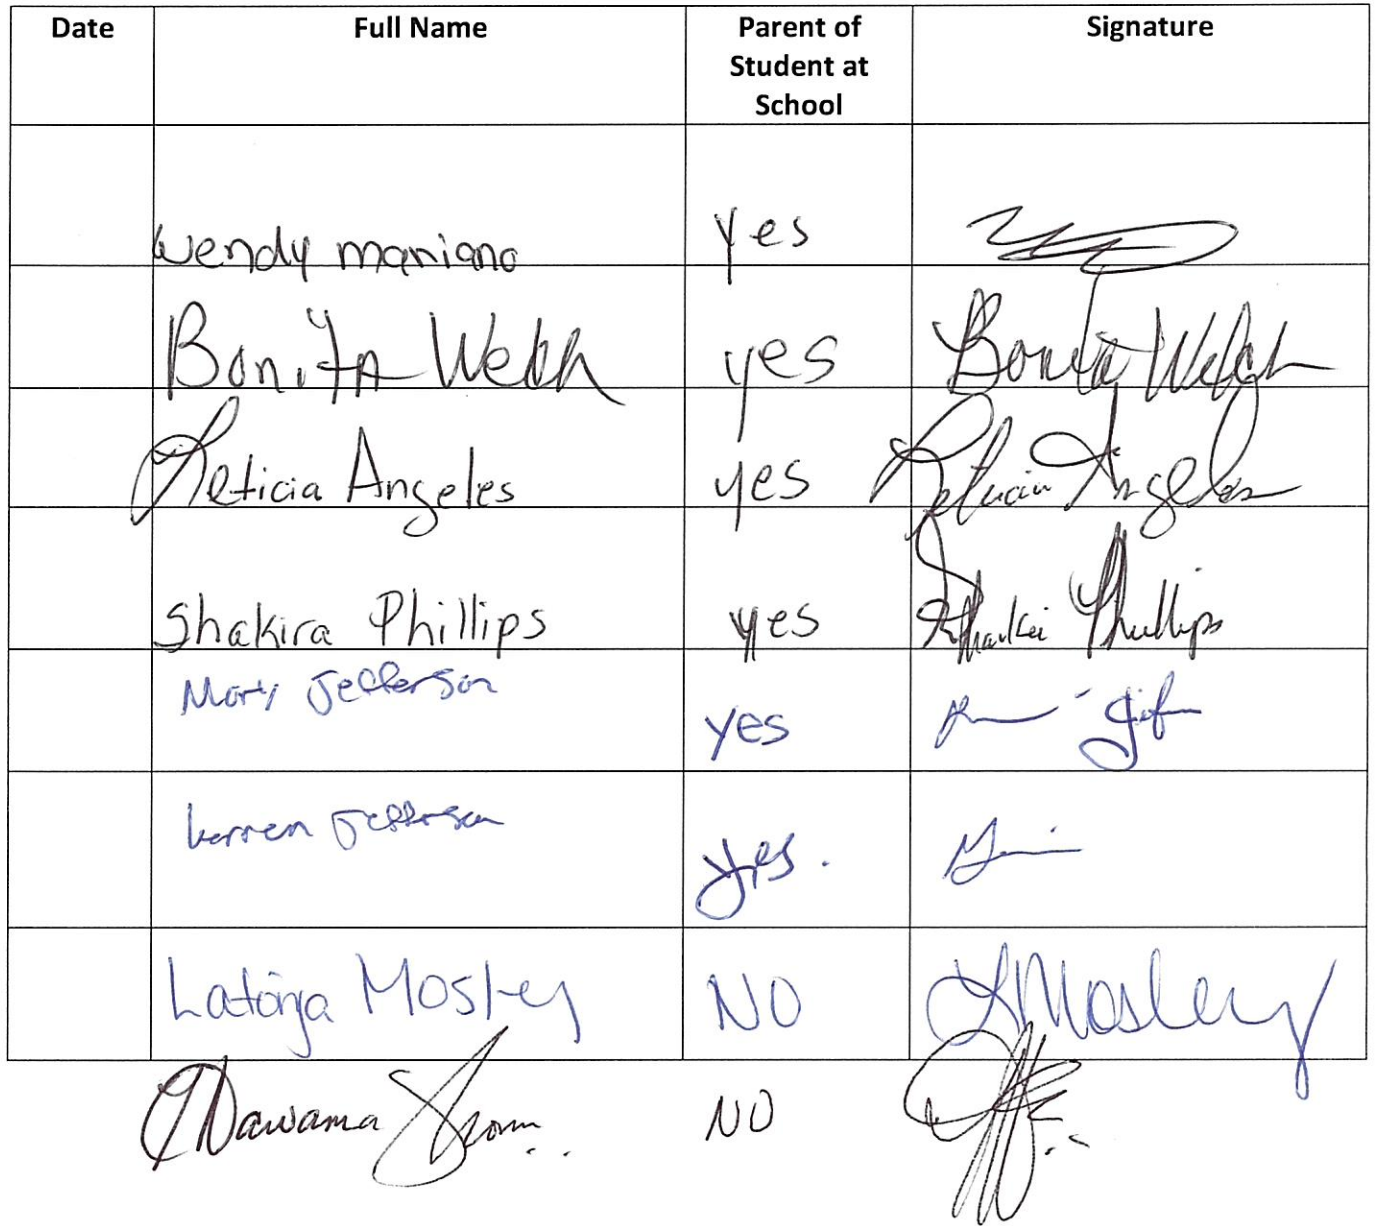 Date Full Name Parent of Student at School Signature
Wendy mariano yes
Bonita Welch yes Bonita Welch
Leticia Angeles yes Leticia Angeles
Shakira Phillips yes Phillips
Mary Jefferson yes
Karren Jefferson yes.
Latonja Mosley NO LMosley
NO